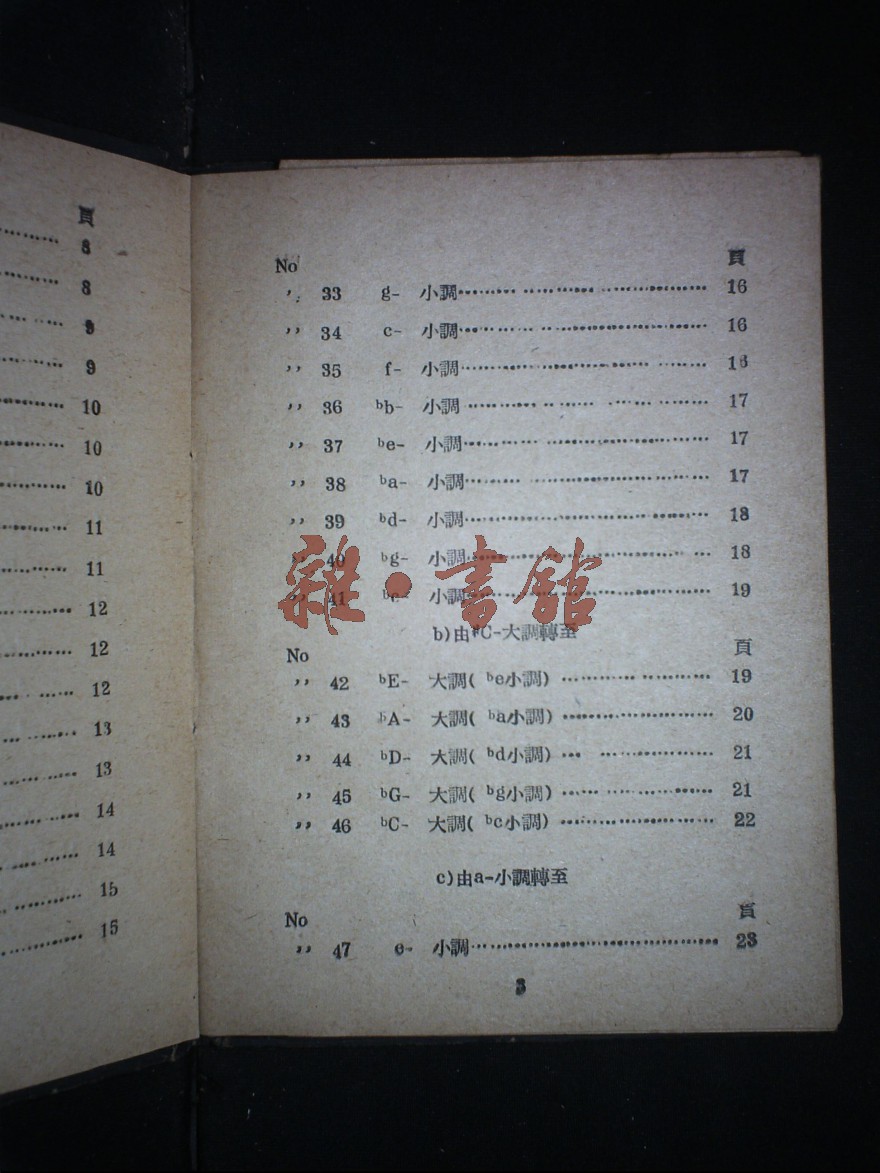 頁
8
8
9
9
10
10
10
11
11
12
12
12
13
13
14
14
15
15
No 頁
,, 33 g- 小調 16
,, 34 c- 小調 16
,, 35 f- 小調 16
,, 36 ᵇb- 小調 17
,, 37 ᵇe- 小調 17
,, 38 ᵇa- 小調 17
,, 39 ᵇd- 小調 18
,, 40 ᵇg- 小調 18
,, 41 ᵇc- 小調 19
雜·書館
b)由#C-大調轉至
No 頁
,, 42 ᵇE- 大調( ᵇe小調) 19
,, 43 ᵇA- 大調( ᵇa小調) 20
,, 44 ᵇD- 大調( ᵇd小調) 21
,, 45 ᵇG- 大調( ᵇg小調) 21
,, 46 ᵇC- 大調( ᵇc小調) 22
c)由a-小調轉至
No 頁
,, 47 e- 小調 23
3